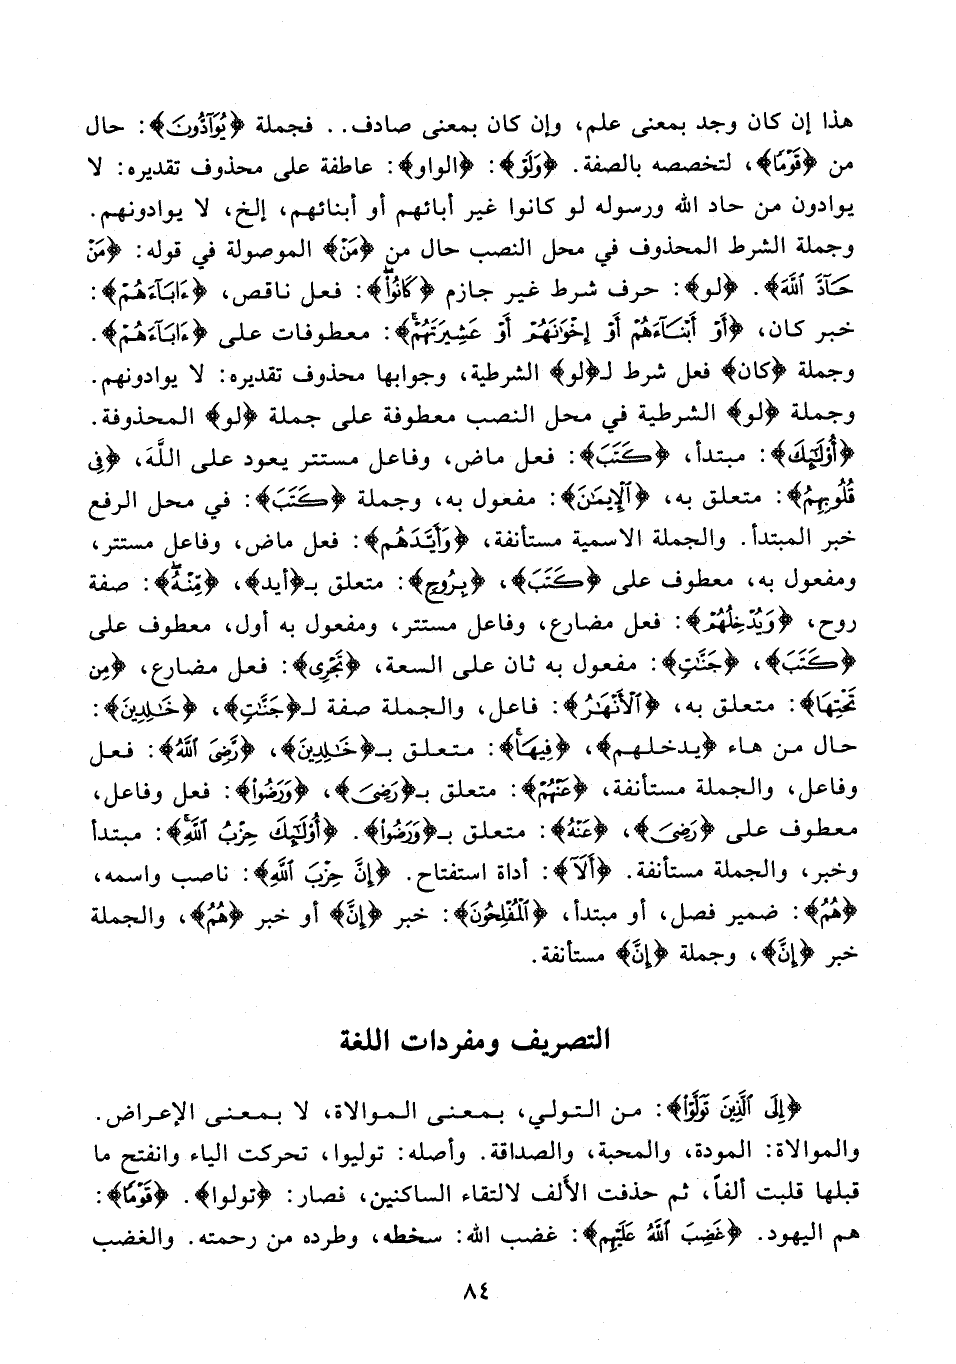 هذا إن كان وجد بمعنى علم، وإن كان بمعنى صادف.. فجملة ﴿يُوَآدُّونَ﴾: حال
من ﴿قَوْمًا﴾، لتخصصه بالصفة. ﴿وَلَوْ﴾: ﴿الواو﴾: عاطفة على محذوف تقديره: لا
يوادون من حاد الله ورسوله لو كانوا غير أبائهم أو أبنائهم، إلخ، لا يوادونهم.
وجملة الشرط المحذوف في محل النصب حال من ﴿مَنْ﴾ الموصولة في قوله: ﴿مَنْ
حَآدَّ ٱللَّهَ﴾. ﴿لو﴾: حرف شرط غير جازم ﴿كَانُوٓا۟﴾: فعل ناقص، ﴿ءَابَآءَهُمْ﴾:
خبر كان، ﴿أَوْ أَبْنَآءَهُمْ أَوْ إِخْوَٰنَهُمْ أَوْ عَشِيرَتَهُمْ﴾: معطوفات على ﴿ءَابَآءَهُمْ﴾.
وجملة ﴿كان﴾ فعل شرط لـ﴿لو﴾ الشرطية، وجوابها محذوف تقديره: لا يوادونهم.
وجملة ﴿لو﴾ الشرطية في محل النصب معطوفة على جملة ﴿لو﴾ المحذوفة.
﴿أُو۟لَٰٓئِكَ﴾: مبتدأ، ﴿كَتَبَ﴾: فعل ماض، وفاعل مستتر يعود على اللَّهَ، ﴿فِي
قُلُوبِهِمُ﴾: متعلق به، ﴿ٱلْإِيمَٰنَ﴾: مفعول به، وجملة ﴿كَتَبَ﴾: في محل الرفع
خبر المبتدأ. والجملة الاسمية مستأنفة، ﴿وَأَيَّدَهُم﴾: فعل ماض، وفاعل مستتر،
ومفعول به، معطوف على ﴿كَتَبَ﴾، ﴿بِرُوحٍ﴾: متعلق بـ﴿أيد﴾، ﴿مِّنْهُ﴾: صفة
روح، ﴿وَيُدْخِلُهُمْ﴾: فعل مضارع، وفاعل مستتر، ومفعول به أول، معطوف على
﴿كَتَبَ﴾، ﴿جَنَّٰتٍ﴾: مفعول به ثان على السعة، ﴿تَجْرِى﴾: فعل مضارع، ﴿مِن
تَحْتِهَا﴾: متعلق به، ﴿ٱلْأَنْهَٰرُ﴾: فاعل، والجملة صفة لـ﴿جَنَّٰتٍ﴾، ﴿خَٰلِدِينَ﴾:
حال من هاء ﴿يدخلهم﴾، ﴿فِيهَا﴾: متعلق بـ﴿خَٰلِدِينَ﴾، ﴿رَضِىَ ٱللَّهُ﴾: فعل
وفاعل، والجملة مستأنفة، ﴿عَنْهُمْ﴾: متعلق بـ﴿رَضِىَ﴾، ﴿وَرَضُوا۟﴾: فعل وفاعل،
معطوف على ﴿رَضِىَ﴾، ﴿عَنْهُ﴾: متعلق بـ﴿وَرَضُوا۟﴾. ﴿أُو۟لَٰٓئِكَ حِزْبُ ٱللَّهِ﴾: مبتدأ
وخبر، والجملة مستأنفة. ﴿أَلَآ﴾: أداة استفتاح. ﴿إِنَّ حِزْبَ ٱللَّهِ﴾: ناصب واسمه،
﴿هُمُ﴾: ضمير فصل، أو مبتدأ، ﴿ٱلْمُفْلِحُونَ﴾: خبر ﴿إِنَّ﴾ أو خبر ﴿هُمُ﴾، والجملة
خبر ﴿إِنَّ﴾، وجملة ﴿إِنَّ﴾ مستأنفة.
التصريف ومفردات اللغة
﴿إِلَى ٱلَّذِينَ تَوَلَّوْا۟﴾: من التولي، بمعنى الموالاة، لا بمعنى الإعراض.
والموالاة: المودة، والمحبة، والصداقة. وأصله: توليوا، تحركت الياء وانفتح ما
قبلها قلبت ألفاً، ثم حذفت الألف لالتقاء الساكنين، فصار: ﴿تولوا﴾. ﴿قَوْمًا﴾:
هم اليهود. ﴿غَضِبَ ٱللَّهُ عَلَيْهِم﴾: غضب الله: سخطه، وطرده من رحمته. والغضب
٨٤